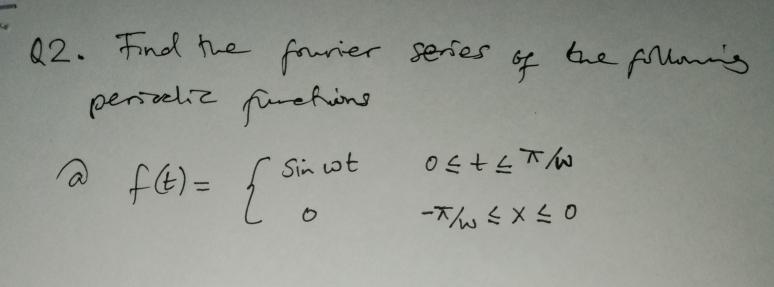 Q2. Find the fourier series of the following
periodic functions
@ f(t) = { sin wt 0 ≤ t ≤ π/w
0 -π/w ≤ x ≤ 0